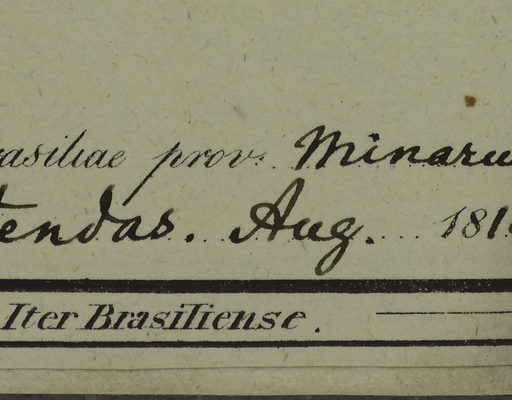 rasiliae prov. Minaru
tendas. Aug. 181
Iter Brasiliense.